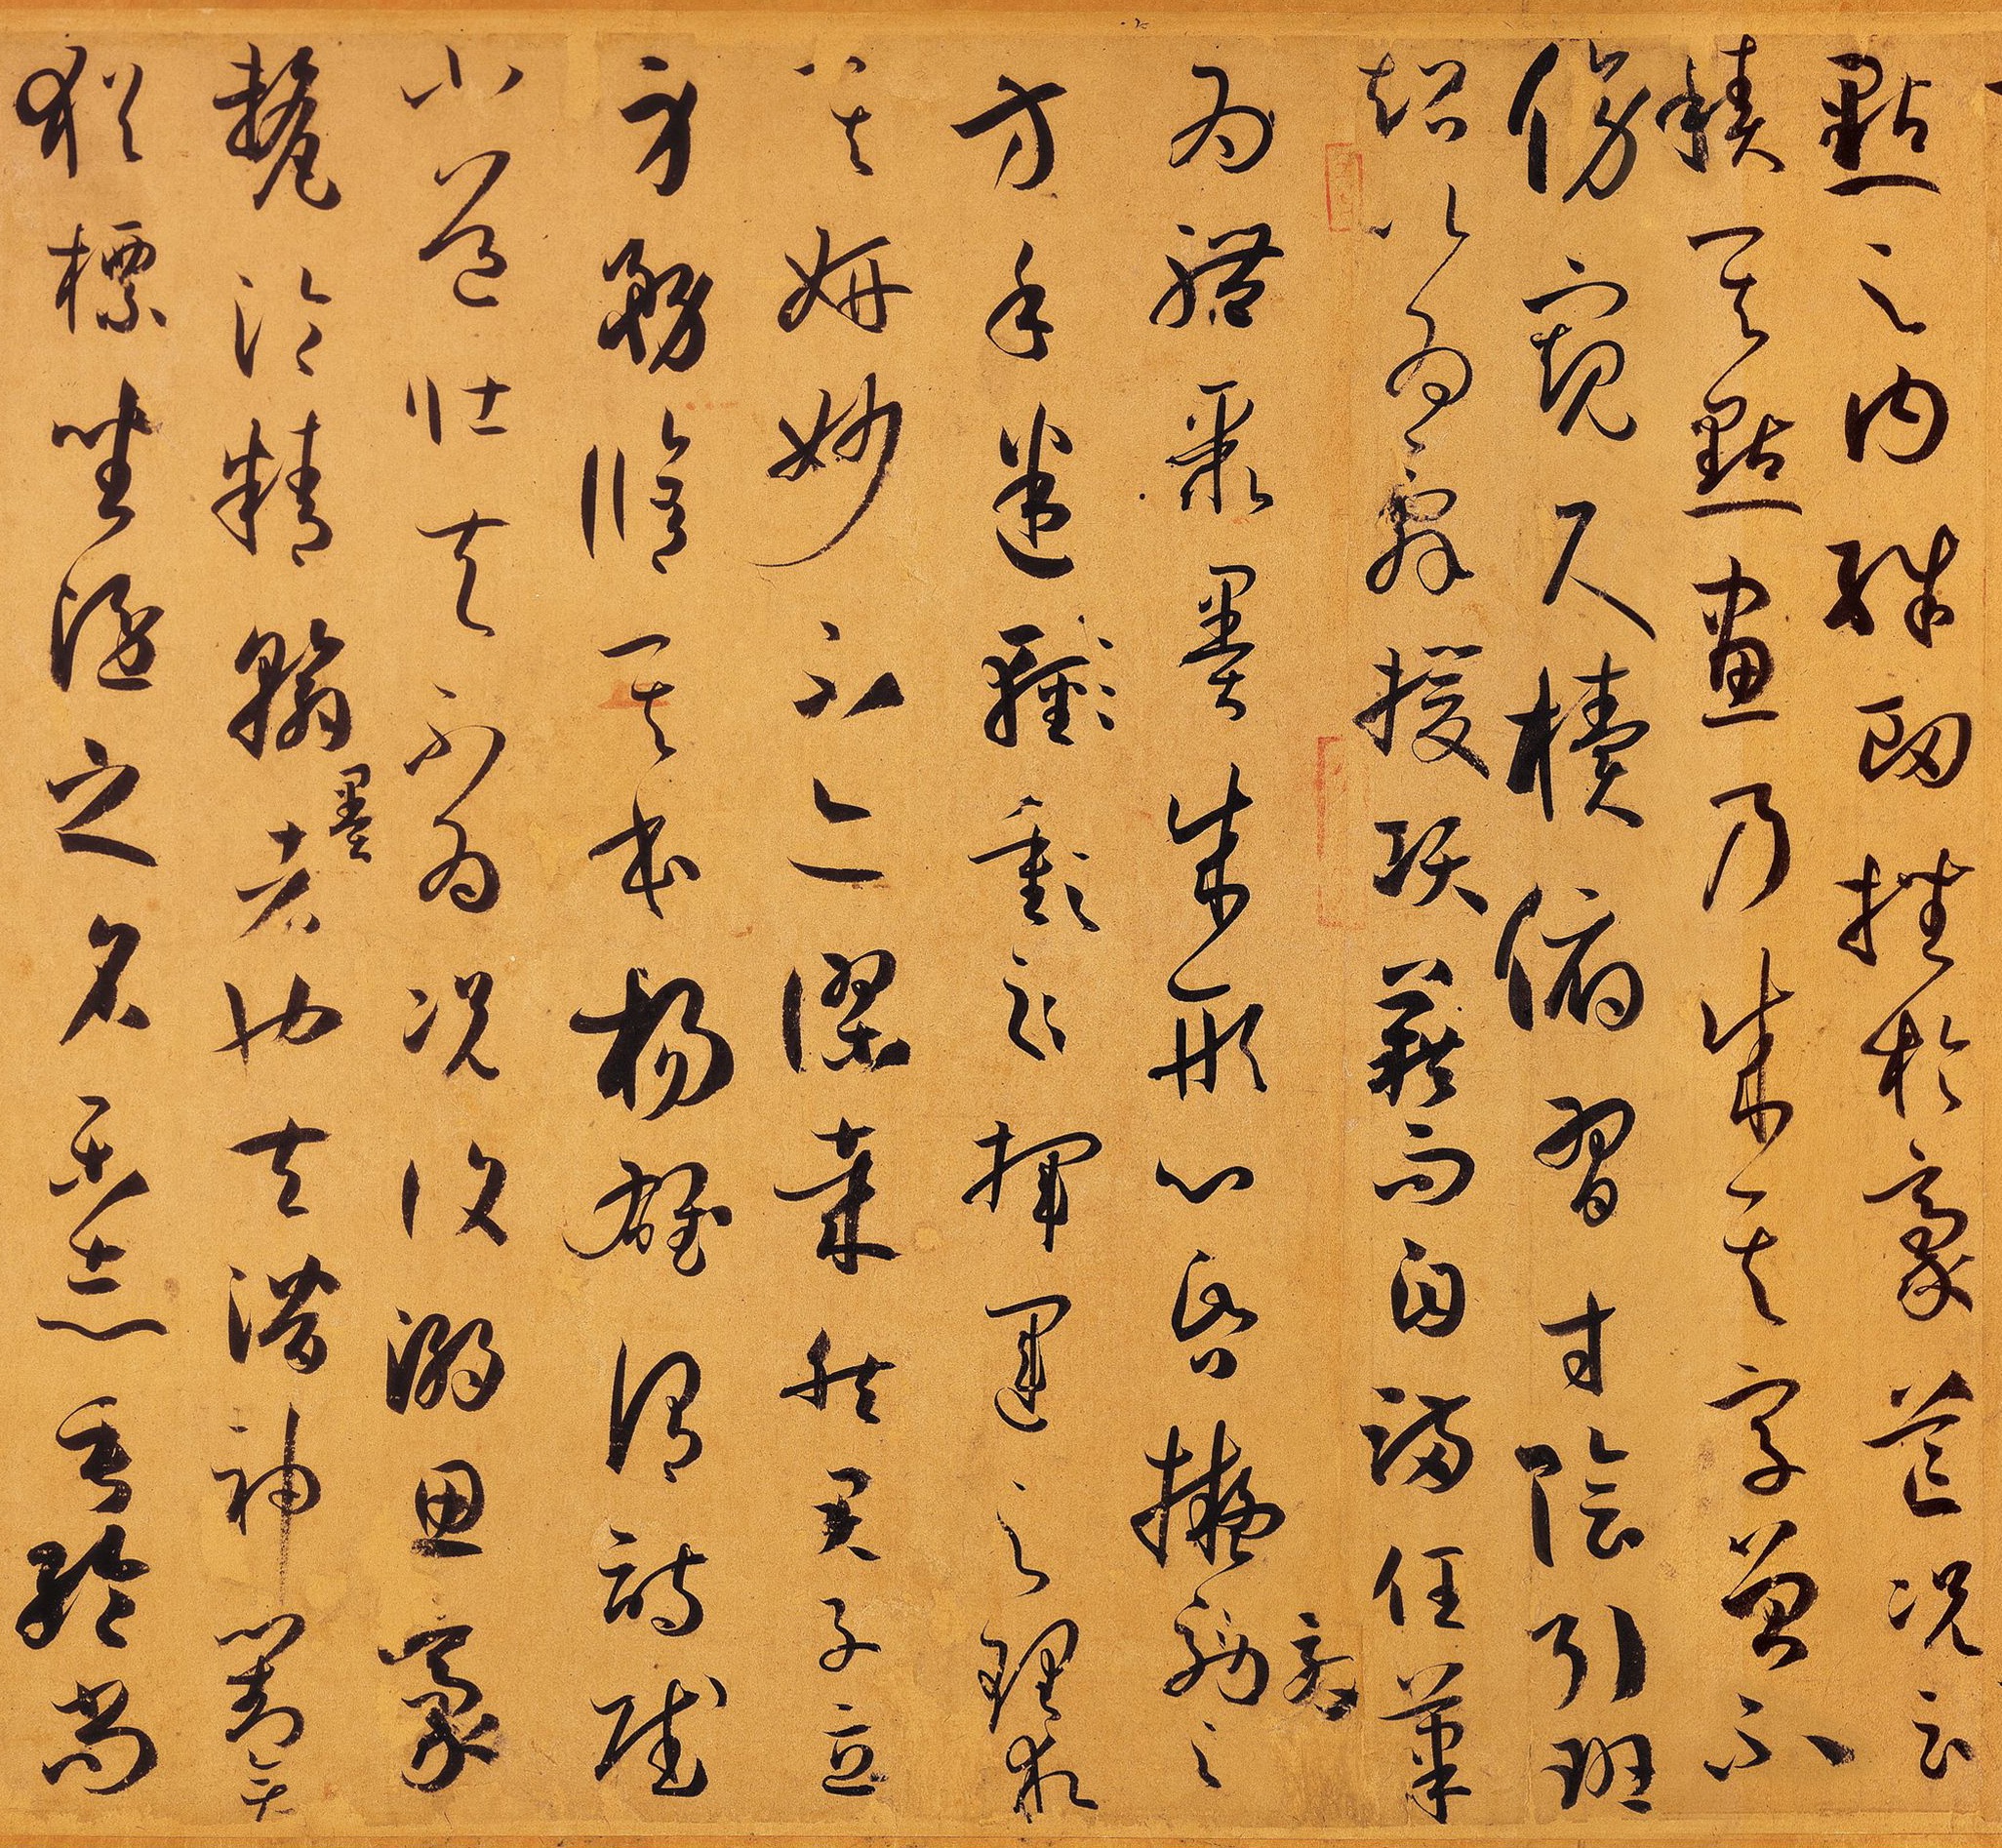 點之內殊衄挫於豪芒況云
積其點畫乃成其字曾不
傍窺尺牘俯習寸陰引班
超以為辭援項藉而自滿任筆
為體聚墨成形心昏擬効之
方手迷揮運之理求
其妍妙不亦謬哉然君子立
身務脩其本楊雄謂詩賦
小道壯夫不為況復溺思豪
氂淪精翰墨者也夫潛神對弈
猶標坐隱之名樂志垂綸尚